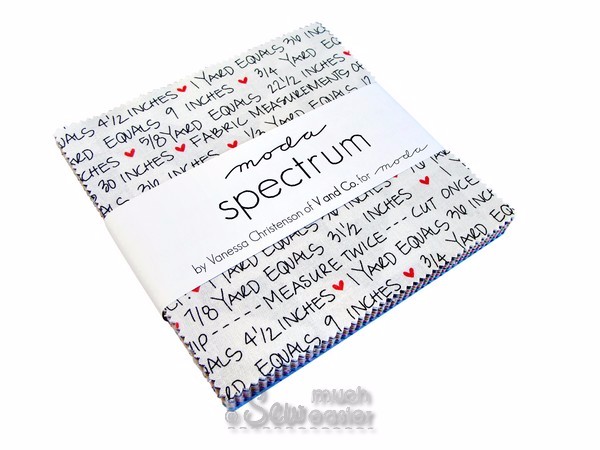 1 YARD EQUALS 36 INC
UALS 4 1/2 INCHES ♥ 3/4 YARD EQUALS
ARD EQUALS 9 INCHES ♥ 22 1/2 INCHES
CHES ♥ 5/8 YARD EQUALS
30 INCHES ♥ FABRIC MEASUREMENTS OF
EQUALS 1/2 YARD
moda
spectrum
by Vanessa Christenson of V and Co. for moda
♥ 1 YARD EQUALS
7/8 YARD EQUALS 31 1/2 INCHES ♥
IP ----- MEASURE TWICE ---- CUT ONCE
ALS 4 1/2 INCHES ♥ 1 YARD EQUALS 36 INCH
RD EQUALS 9 INCHES ♥ 3/4 YARD EQ
much
Sew easier